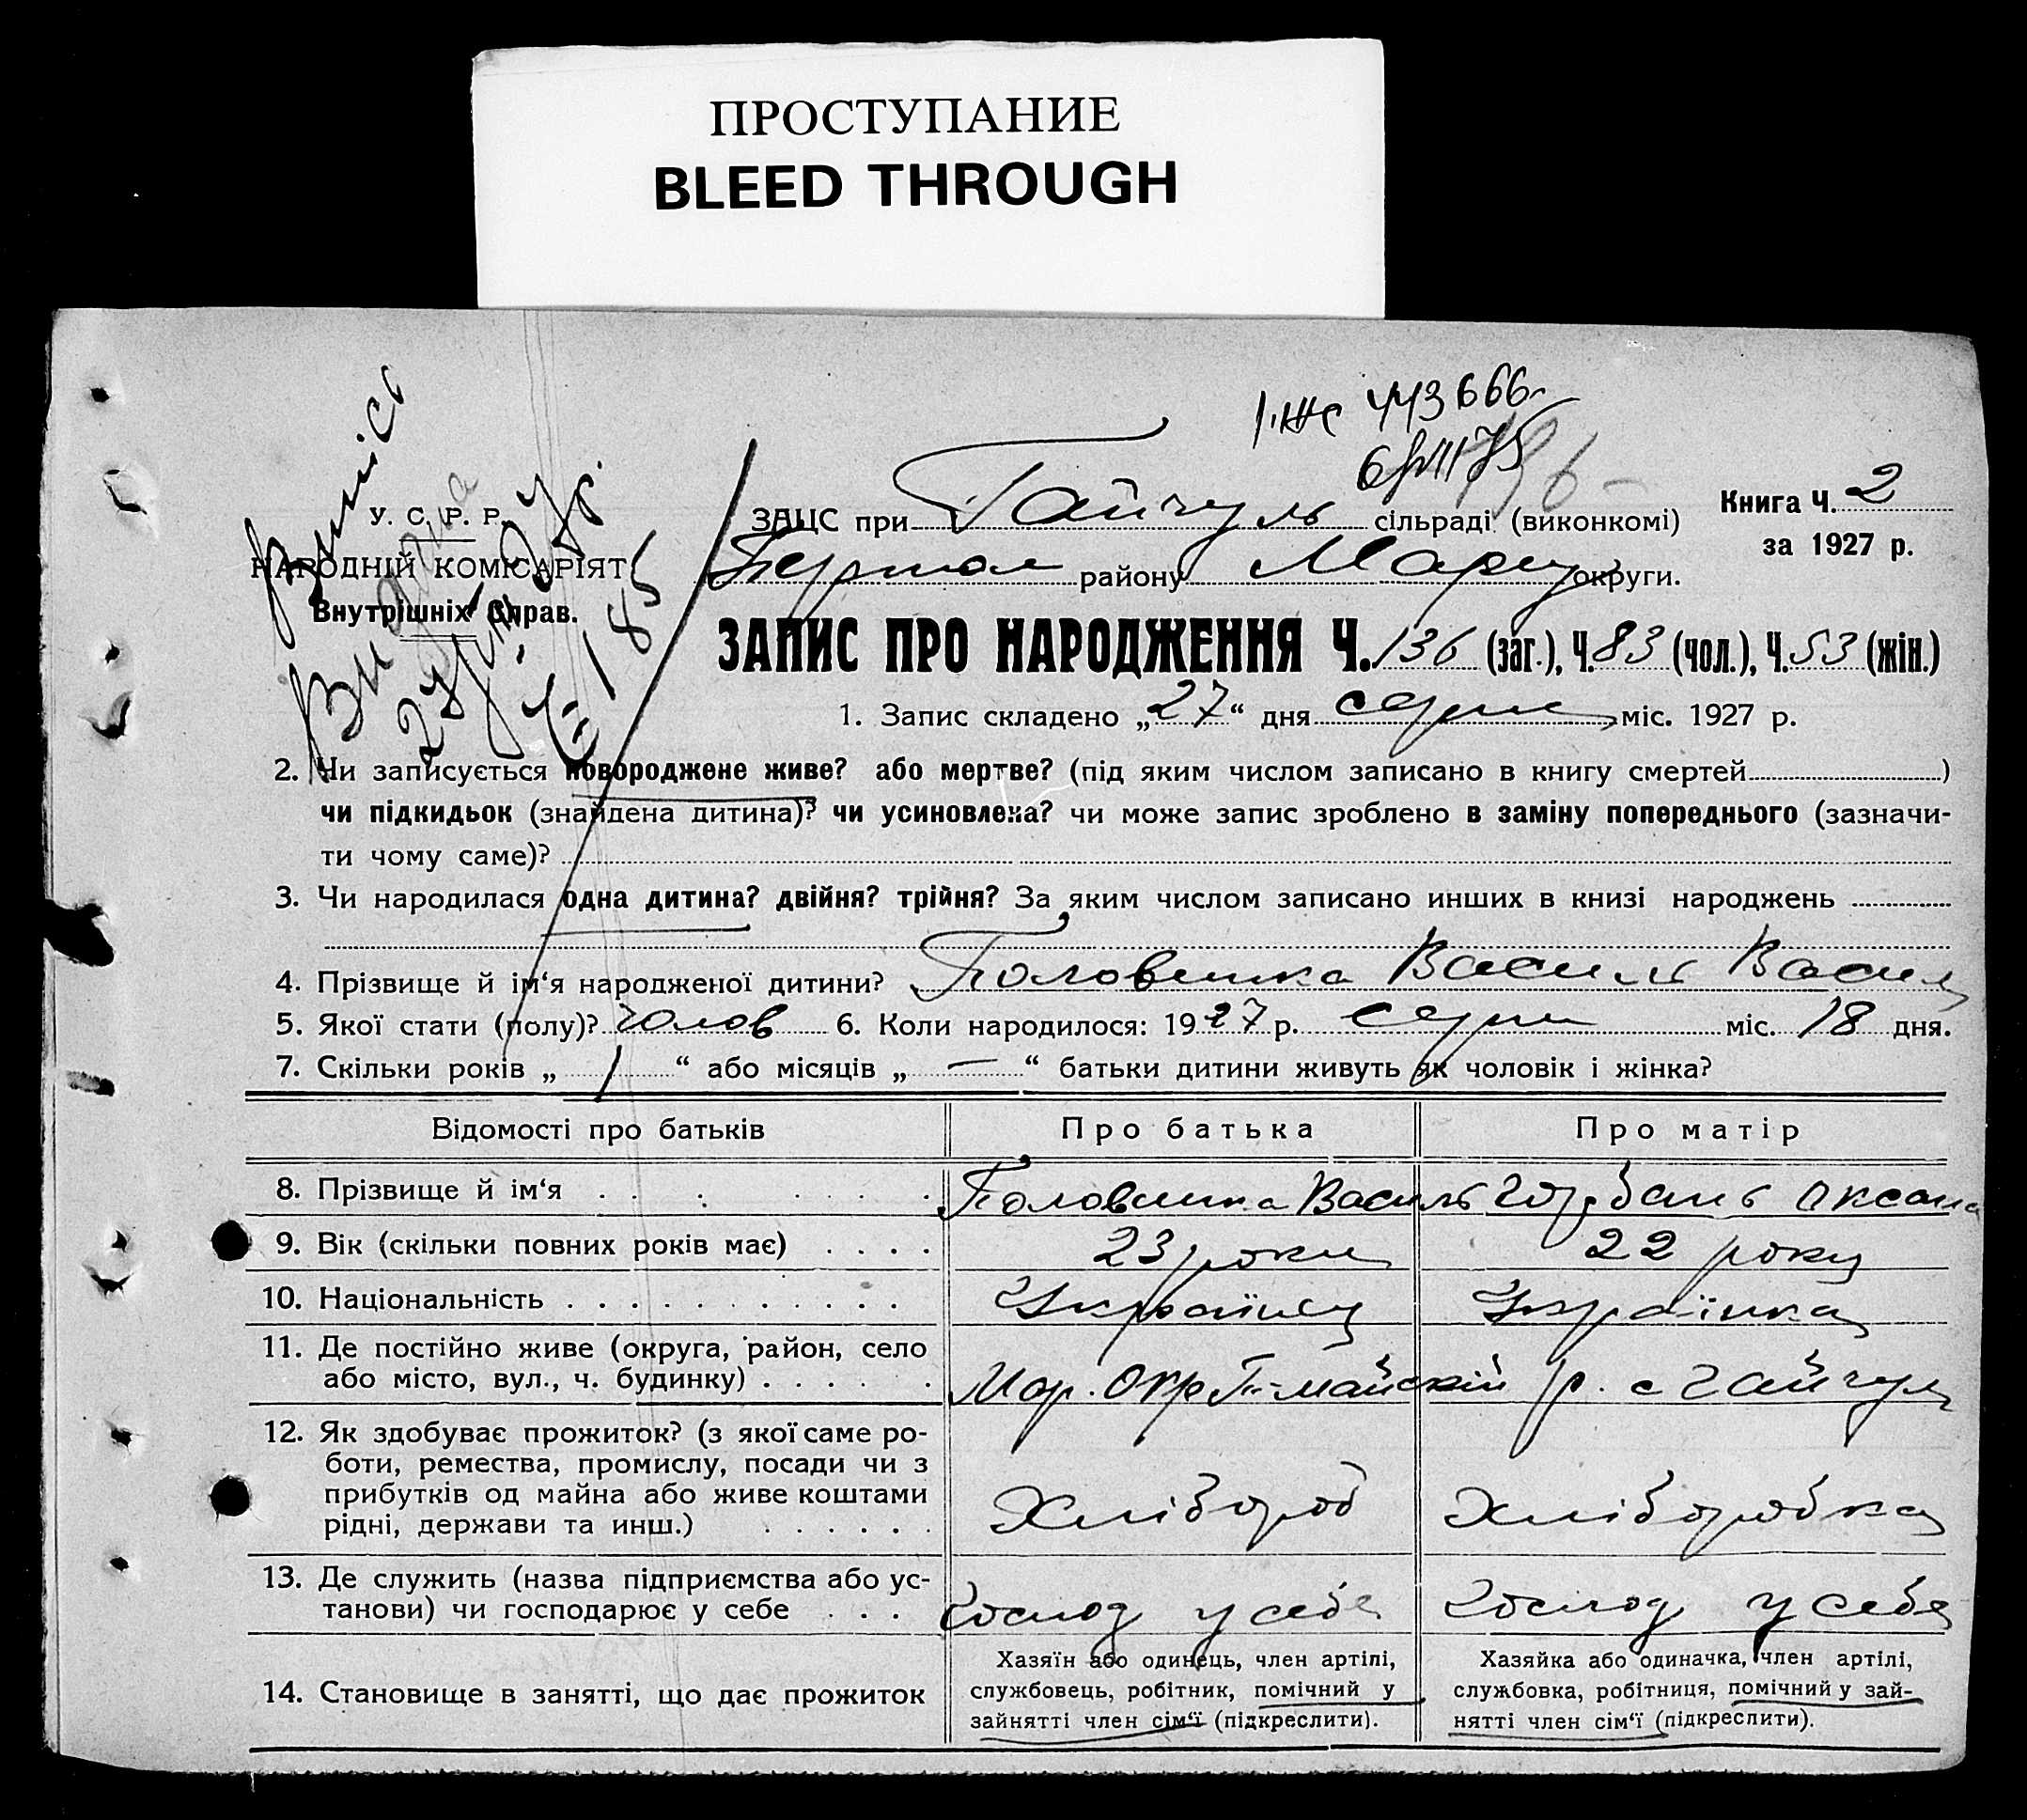 ПРОСТУПАНИЕ
BLEED THROUGH
І-ЖС 443666
У. С. Р. Р.
НАРОДНІЙ КОМІСАРІЯТ
Внутрішніх Справ.
Випись
Видана
ЗАЦС при Гайчуль сільраді (виконкомі)
Книга Ч. 2
за 1927 р.
Першом району Маріу округи.
ЗАПИС ПРО НАРОДЖЕННЯ Ч. 136 (заг.), Ч. 83 (чол.), Ч. 53 (жін.)
1. Запис складено „27“ дня серпня міс. 1927 р.
2. Чи записується новороджене живе? або мертве? (під яким числом записано в книгу смертей )
чи підкидьок (знайдена дитина)? чи усиновлена? чи може запис зроблено в заміну попереднього (зазначи-
ти чому саме)?
3. Чи народилася одна дитина? двійня? трійня? За яким числом записано инших в книзі народжень
4. Прізвище й ім‘я народженої дитини? Половинка Василь Васил
5. Якої стати (полу)? чолов 6. Коли народилося: 1927 р. серпня міс. 18 дня.
7. Скільки років „ 1 “ або місяців „ — “ батьки дитини живуть як чоловік і жінка?
Відомості про батьків Про батька Про матір
8. Прізвище й ім‘я Половинка Василь Горбань Оксана
9. Вік (скільки повних років має) 23 роки 22 року
10. Національність Українц Українка
11. Де постійно живе (округа, район, село
або місто, вул., ч. будинку) Мар. Окр П-майскій р. с Гайчул
12. Як здобуває прожиток? (з якої саме ро-
боти, ремества, промислу, посади чи з
прибутків од майна або живе коштами
рідні, держави та инш.) Хлібороб Хліборобка
13. Де служить (назва підприємства або ус-
танови) чи господарює у себе Господ у себе Господ у себе
14. Становище в занятті, що дає прожиток
Хазяїн або одинець, член артілі,
службовець, робітник, помічний у
зайнятті член сім‘ї (підкреслити).
Хазяйка або одиначка, член артілі,
службовка, робітниця, помічний у зай-
нятті член сім‘ї (підкреслити).